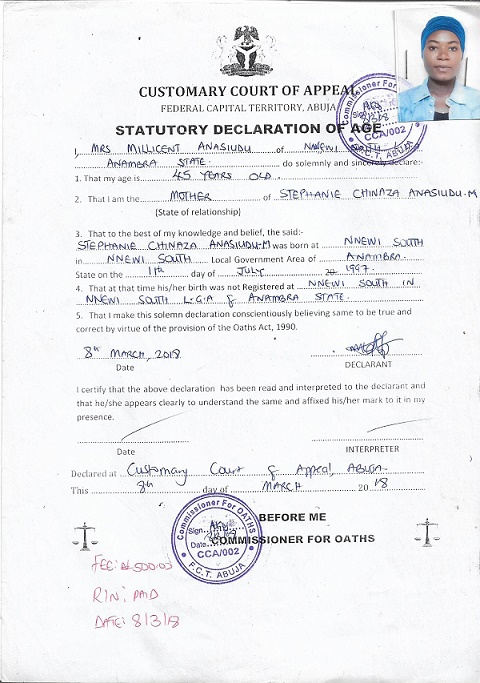 CUSTOMARY COURT OF APPEAL
FEDERAL CAPITAL TERRITORY, ABUJA
STATUTORY DECLARATION OF AGE
I, MRS MILLICENT ANASIUDU of NNEWI SOUTH
ANAMBRA STATE. do solemnly and sincerely declare:-
1. That my age is 45 YEARS OLD.
2. That I am the MOTHER of STEPHANIE CHINAZA ANASIUDU-M
(State of relationship)
3. That to the best of my knowledge and belief, the said:-
STEPHANIE CHINAZA ANASIUDU-M was born at NNEWI SOUTH
in NNEWI SOUTH Local Government Area of ANAMBRA.
State on the 11th day of JULY 1997.
4. That at that time his/her birth was not Registered at NNEWI SOUTH IN
NNEWI SOUTH L.G.A of ANAMBRA STATE.
5. That I make this solemn declaration conscientiously believing same to be true and
correct by virtue of the provision of the Oaths Act, 1990.
8th MARCH, 2018
Date
DECLARANT
I certify that the above declaration has been read and interpreted to the declarant and
that he/she appears clearly to understand the same and affixed his/her mark to it in my
presence.
Date
INTERPRETER
Declared at Customary Court of Appeal, ABUJA.
This 8th day of MARCH 2018
BEFORE ME
COMMISSIONER FOR OATHS
Commissioner For OATHS
Sign
Date
CCA/002
F.C.T. ABUJA
Commissioner For
Sign
CCA/002
F.C.T. ABUJA
FEE: ₦500:00
R/N: PAID
DATE: 8/3/18